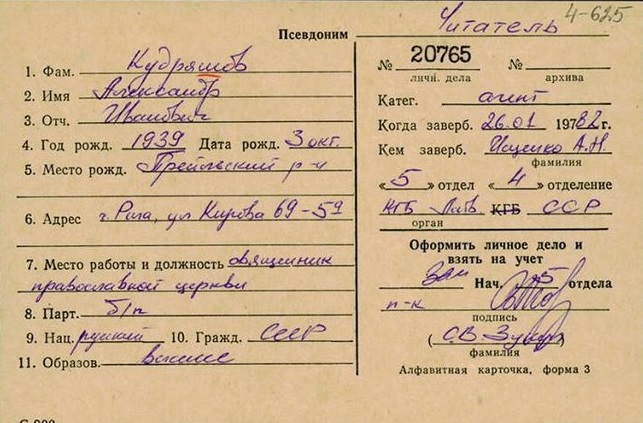 Псевдоним Читатель 4-625
1. Фам. Кудряшов
2. Имя Александр
3. Отч. Иванович
4. Год рожд. 1939 Дата рожд. 3 окт.
5. Место рожд. Прейльский р-н
6. Адрес г. Рига, ул Кирова 69-59
7. Место работы и должность священник
православной церкви
8. Парт. б/п
9. Нац. русский 10. Гражд. СССР
11. Образов. высшее
№ 20765 №
личн. дела архива
Катег. агент
Когда заверб. 26.01 1982 г.
Кем заверб. Ищенко А.Н.
фамилия
«5» отдел «4» отделение
КГБ Латв КГБ ССР
орган
Оформить личное дело и
взять на учет
Зам Нач. 5 отдела
п-к
подпись
(С.В.
фамилия
Алфавитная карточка, форма 3